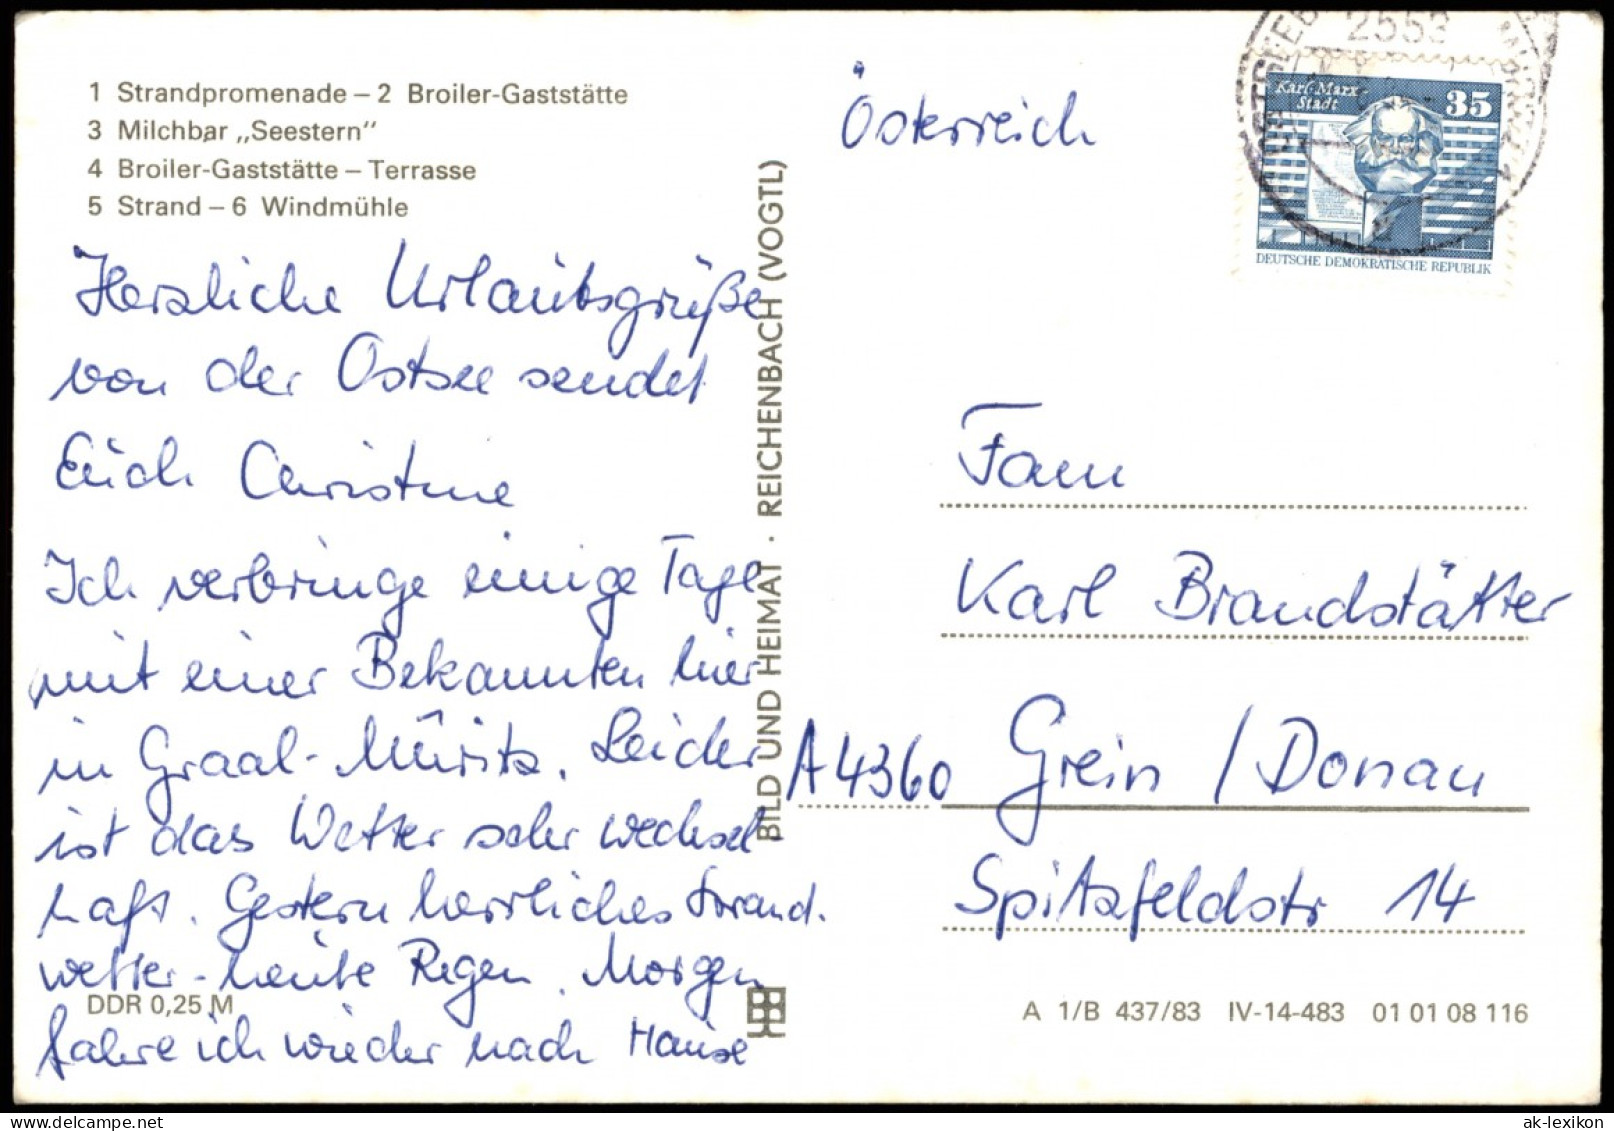 1 Strandpromenade – 2 Broiler-Gaststätte
3 Milchbar „Seestern"
4 Broiler-Gaststätte – Terrasse
5 Strand – 6 Windmühle
Herzliche Urlaubsgrüße
von der Ostsee sendet
Euch Christine
Ich verbringe einige Tage
mit einer Bekannten hier
in Graal-Müritz. Leider
ist das Wetter sehr wechsel-
haft. Gestern herrliches Strand-
wetter - heute Regen. Morgen
fahre ich wieder nach Hause
DDR 0,25 M
BILD UND HEIMAT · REICHENBACH (VOGTL)
Österreich
2553
Karl-Marx-
Stadt
35
DEUTSCHE DEMOKRATISCHE REPUBLIK
Fam
Karl Brandstätter
A 4360 Grein / Donau
Spitzfeldstr 14
A 1/B 437/83 IV-14-483 01 01 08 116
ak-lexikon